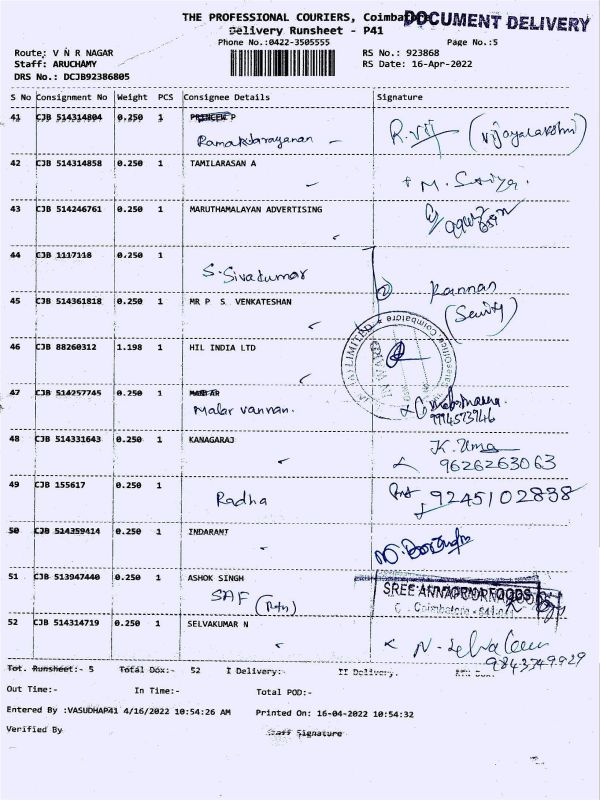 THE PROFESSIONAL COURIERS, Coimbatore
DOCUMENT DELIVERY
Delivery Runsheet - P41
Phone No.:0422-3505555
Page No.:5
Route: V N R NAGAR
RS No.: 923868
Staff: ARUCHAMY
RS Date: 16-Apr-2022
DRS No.: DCJB92386805
S No Consignment No Weight PCS Consignee Details Signature
41 CJB 514314804 0.250 1
Ramakdarayanan R.Vij (Vijayalakshmi)
42 CJB 514314858 0.250 1 TAMILARASAN A
43 CJB 514246761 0.250 1 MARUTHAMALAYAN ADVERTISING
44 CJB 1117118 0.250 1
S. Sivakumar
Kannan
45 CJB 514361818 0.250 1 MR P S VENKATESHAN
46 CJB 88260312 1.198 1 HIL INDIA LTD
47 CJB 514257745 0.250 1
Malar vannan.
9994573946
48 CJB 514331643 0.250 1 KANAGARAJ K. Uma
9626263063
49 CJB 155617 0.250 1
Radha 9245102838
50 CJB 514359414 0.250 1 INDARANI
51 CJB 513947440 0.250 1 ASHOK SINGH
SAF
SREE ANNAPORNA FOODS
52 CJB 514314719 0.250 1 SELVAKUMAR N
9843749929
Tot. Runsheet:- 5 Total Dox:- 52 I Delivery:- II Delivery:-
Out Time:- In Time:- Total POD:-
Entered By :VASUDHAP41 4/16/2022 10:54:26 AM Printed On: 16-04-2022 10:54:32
Verified By Staff Signature